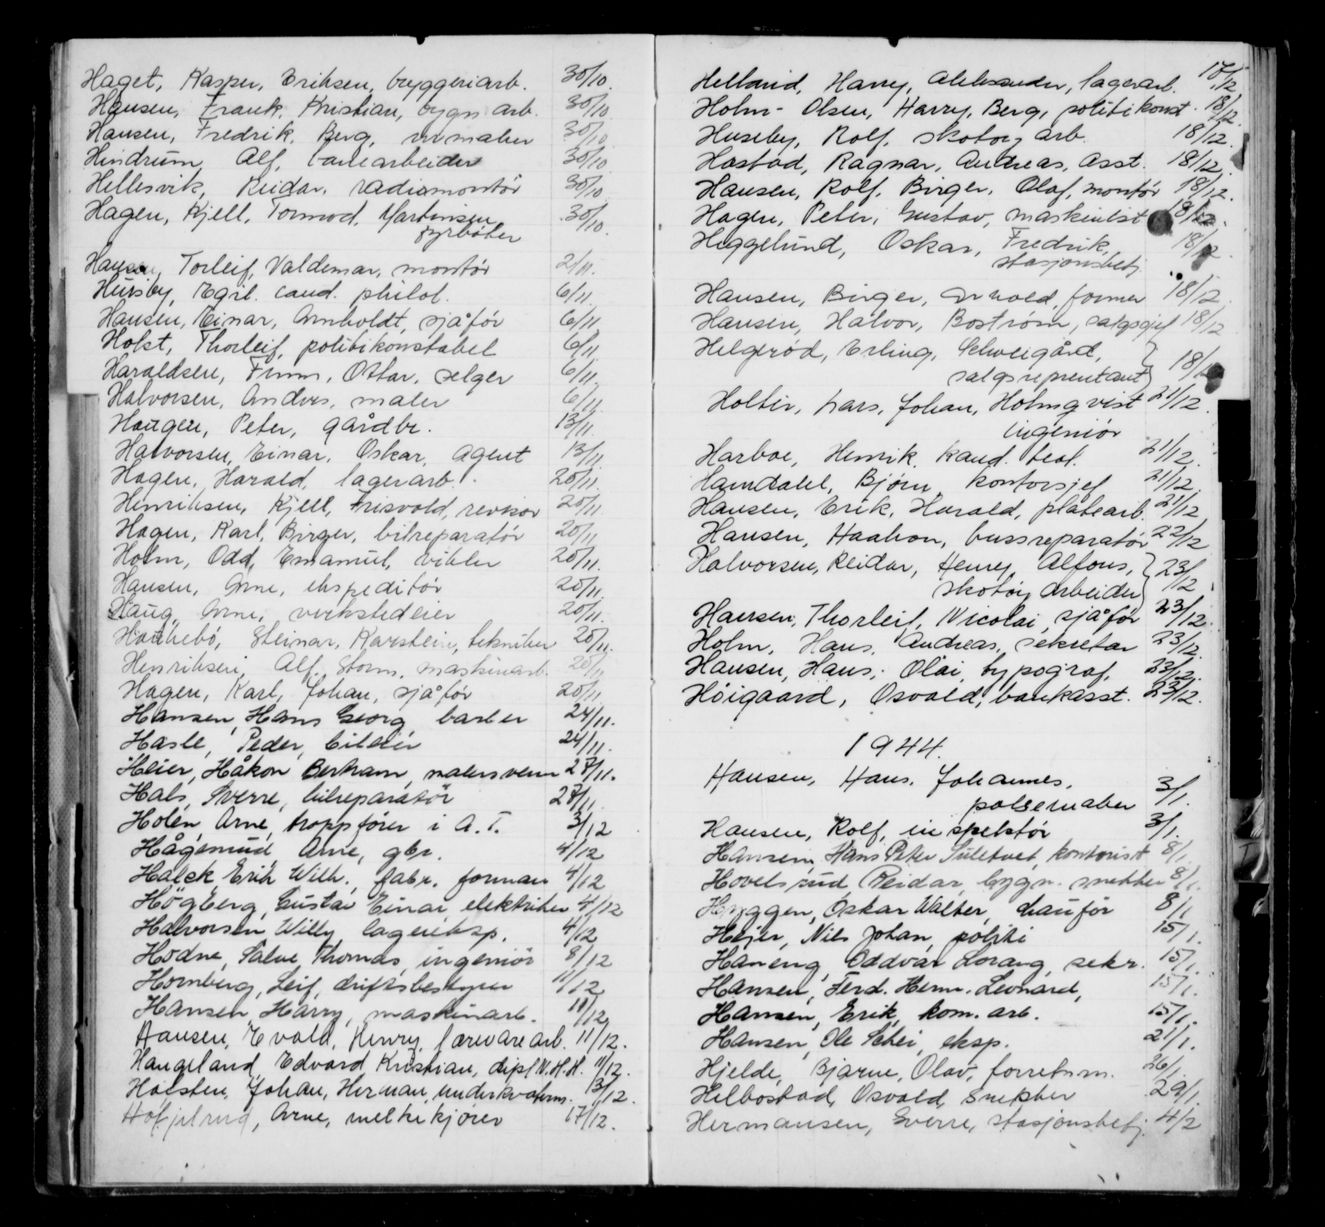 Haget, Kasper, Eriksen, bryggeriarb. 30/10.
Hansen, Frank, Kristian, bygn. arb. 30/10
Hansen, Fredrik, Berg, urmaker 30/10
Hindrum, Alf, 30/10
Hellesvik, Reidar, radiomontör 30/10
Hagen, Kjell, Tormod, Martinsen 30/10.
fyrböter
Hansen, Torleif, Valdemar, montör 2/11.
Huseby, Egil. cand. philol. 6/11
Hansen, Einar, Arnholdt, sjåför 6/11
Holst, Thorleif, politikonstabel 6/11
Haraldsen, Finn, Ottar, selger 6/11
Halvorsen, Anders, maler 6/11
Haugen, Peter, gårdbr. 13/11
Halvorsen, Einar, Oskar, agent 13/11
Hagen, Harald, lagerarb. 20/11
Henriksen, Kjell, Frisvold, revisor 20/11
Hagen, Karl, Birger, bilreparatör 20/11
Holm, Odd, Emanuel, 20/11.
Hansen, Arne, ekspeditör 20/11
Haug, Arne, verkstedeier 20/11.
Steinar, Karstein, tekniker 20/11.
Henriksen, Alf, Storm, maskinarb. 20/11
Hagen, Karl, Johan, sjåför 20/11
Hansen, Hans Georg, barber 24/11.
Hasle, Peder, bileier 24/11.
Heier, Håkon Bertram, malersvenn 27/11.
Hals, Sverre, bilreparatör 27/11
Holén, Arne, troppsförer i A.T. 3/12
Hågensrud Arne, gbr. 4/12
Halck Erik Wilh., fabr. forman 4/12
Högberg, Gustav Einar, elektriker 4/12
Halvorsen Willy lagereksp. 4/12
Hodne, Salve, Thomas, ingeniör 8/12
Hornberg, Leif, driftsbestyrer 11/12
Hansen, Harry, maskinarb. 11/12
Hansen, Evald, Henry, lærvarearb. 11/12.
Haugeland, Edvard Kristian, dipl. N.H.H. 11/12.
Holsten, Johan, Herman, underkvaterm. 13/12.
Arne, melkekjörer 17/12.
Helland, Harry, Aleksander, lagerarb. 18/12
Holm-Olsen, Harry, Berg, politikonst. 18/12.
Huseby, Rolf, skotöy arb. 18/12.
Hastad, Ragnar, Andreas, Asst. 18/12.
Hansen, Rolf, Birger, Olaf, montör 18/12.
Hagen, Peter, Gustav, maskinist 18/12.
Heggelund, Oskar, Fredrik, 18/12
stasjonsbetj.
Hansen, Birger, Arnold, former 18/12
Hansen, Halvor, Boström, salgssjef 18/12
Helgeröd, Erling, Schweigård,
salgsreprentant 18/12
Holter, Lars, Johan, Holmqvist 21/12.
ingeniör
Harboe, Henrik, kand. teol. 21/12.
Hamdahl, Björn, kontorsjef 21/12
Hansen, Erik, Harald, platearb. 21/12
Hansen, Haakon, bussreparatör 22/12
Halvorsen, Reidar, Henry, Alfons, 23/12
skotöy arbeider
Hansen, Thorleif, Nicolai sjåför 23/12.
Holm, Hans, Andreas, sekretær 23/12.
Hansen, Hans, Olai, typograf, 23/12.
Höigaard, Osvald, bankasst. 23/12.
1944.
Hansen, Hans, Johannes,
pölsemaker 3/1.
Hansen, Rolf, inspektör 3/1.
Hansen, Hans Peter kontorist 8/1
Hovelsrud Reidar, bygn. snekker 8/1.
Hyggen, Oskar Walter, chauför 8/1
Heier, Nils Johan, politi 15/1.
Haneng, Oddvar Lorang, sekr. 15/1.
Hansen, Ferd. Herm. Leonard, 15/1.
Hansen, Erik, kom. arb. 15/1.
Hansen, Ole Schei, eksp. 21/1.
Hjelde, Bjarne, Olav, forretn.m. 26/1.
Helbostad, Osvald, snekker 29/1.
Hermansen, Sverre, stasjonsbetj. 4/2